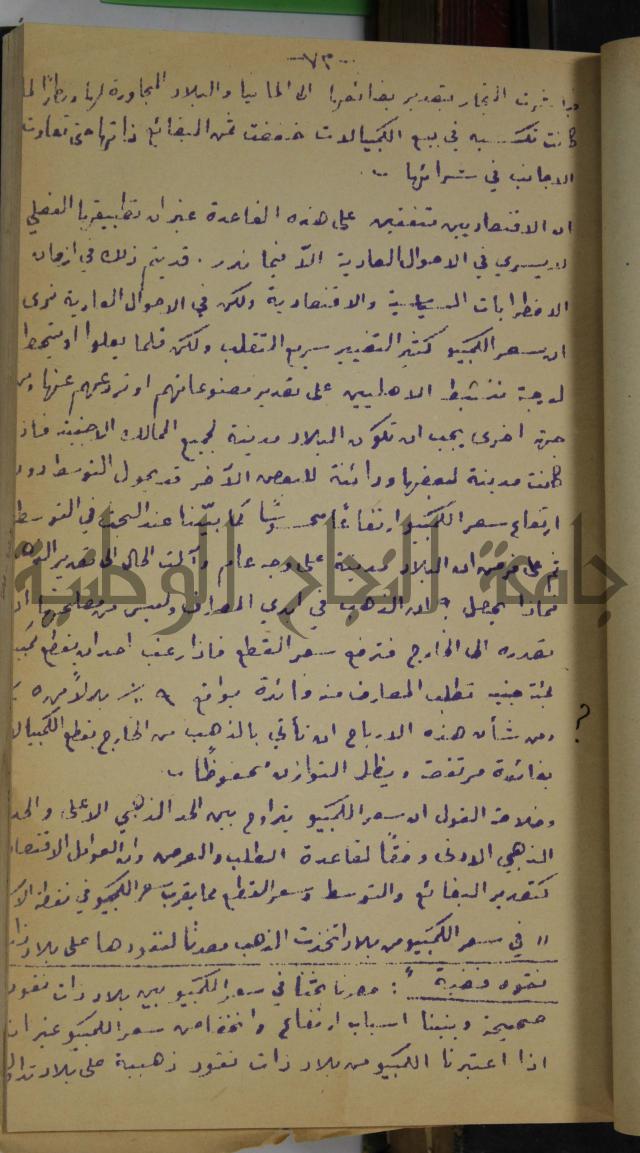 -٧٣-
التجار بتصدير بضائعها الى المانيا والبلاد المجاورة لها
كانت تكسبه في بيع الكمبيالات خفضت ثمن البضائع ذاتها حتى تهافت
الاجانب في شرائها ..
ان الاقتصاديين متفقين على هذه القاعدة غير ان تطبيقها الفعلي
لا يسري في الاحوال العادية الاّ فيما ندر . قد يتم ذلك في ازمان
الاضطرابات السياسية والاقتصادية ولكن في الاحوال العادية نرى
ان سعر الكمبيو كثير التغيير سريع التقلب ولكن قلما يعلوا او ينحط
لدرجة تنشيط الاهليين على تصدير مصنوعاتهم او تردعهم عنها ومن
جهة اخرى يجب ان تكون البلاد مدينة لجميع الممالك الاجنبية فاذا
كانت مدينة لبعضها ودائنة للبعض الآخر قد يحول التوسط دون
ارتفاع سعر الكمبيو ارتفاعًا محسوسًا كما بيّنا عند البحث في التوسط
ثم على فرض ان البلاد مدينة على وجه عام وآلت الحال الى تصدير الذهب
فماذا يحصل ؟ ان الذهب في ايدي المصارف وليس من مصلحتها ان
تصدره الى الخارج فترفع سعر القطع فاذا رغب احد ان يقطع
بمئة جنيه تطلب المصارف منه فائدة بواقع ٦ ٪ بدلاً من ٥
ومن شأن هذه الارباح ان تأتي بالذهب من الخارج بقطع الكمبيالات
؟
بفائدة مرتفعة ويظل التوازن محفوظًا ..
وخلاصة القول ان سعر الكمبيو يتراوح بين الحد الذهبي الاعلى والحد
الذهبي الادنى وفقًا لقاعدة الطلب والعرض وان العوامل الاقتصادية
كتصدير البضائع والتوسط وسعر القطع مما يقرب سعر الكمبيو في نقطة
" في سعر الكمبيو من بلاد اتخذت الذهب معدنًا لنقودها على بلاد ذات
نقود فضية " : حصرنا بحثنا في سعر الكمبيو بين بلاد ذات نقود
صحيحة وبينا اسباب ارتفاع وانخفاض سعر الكمبيو غير ان
اذا اعتبرنا الكمبيو من بلاد ذات نقود ذهبية على بلاد
جامعة النجاح الوطنية